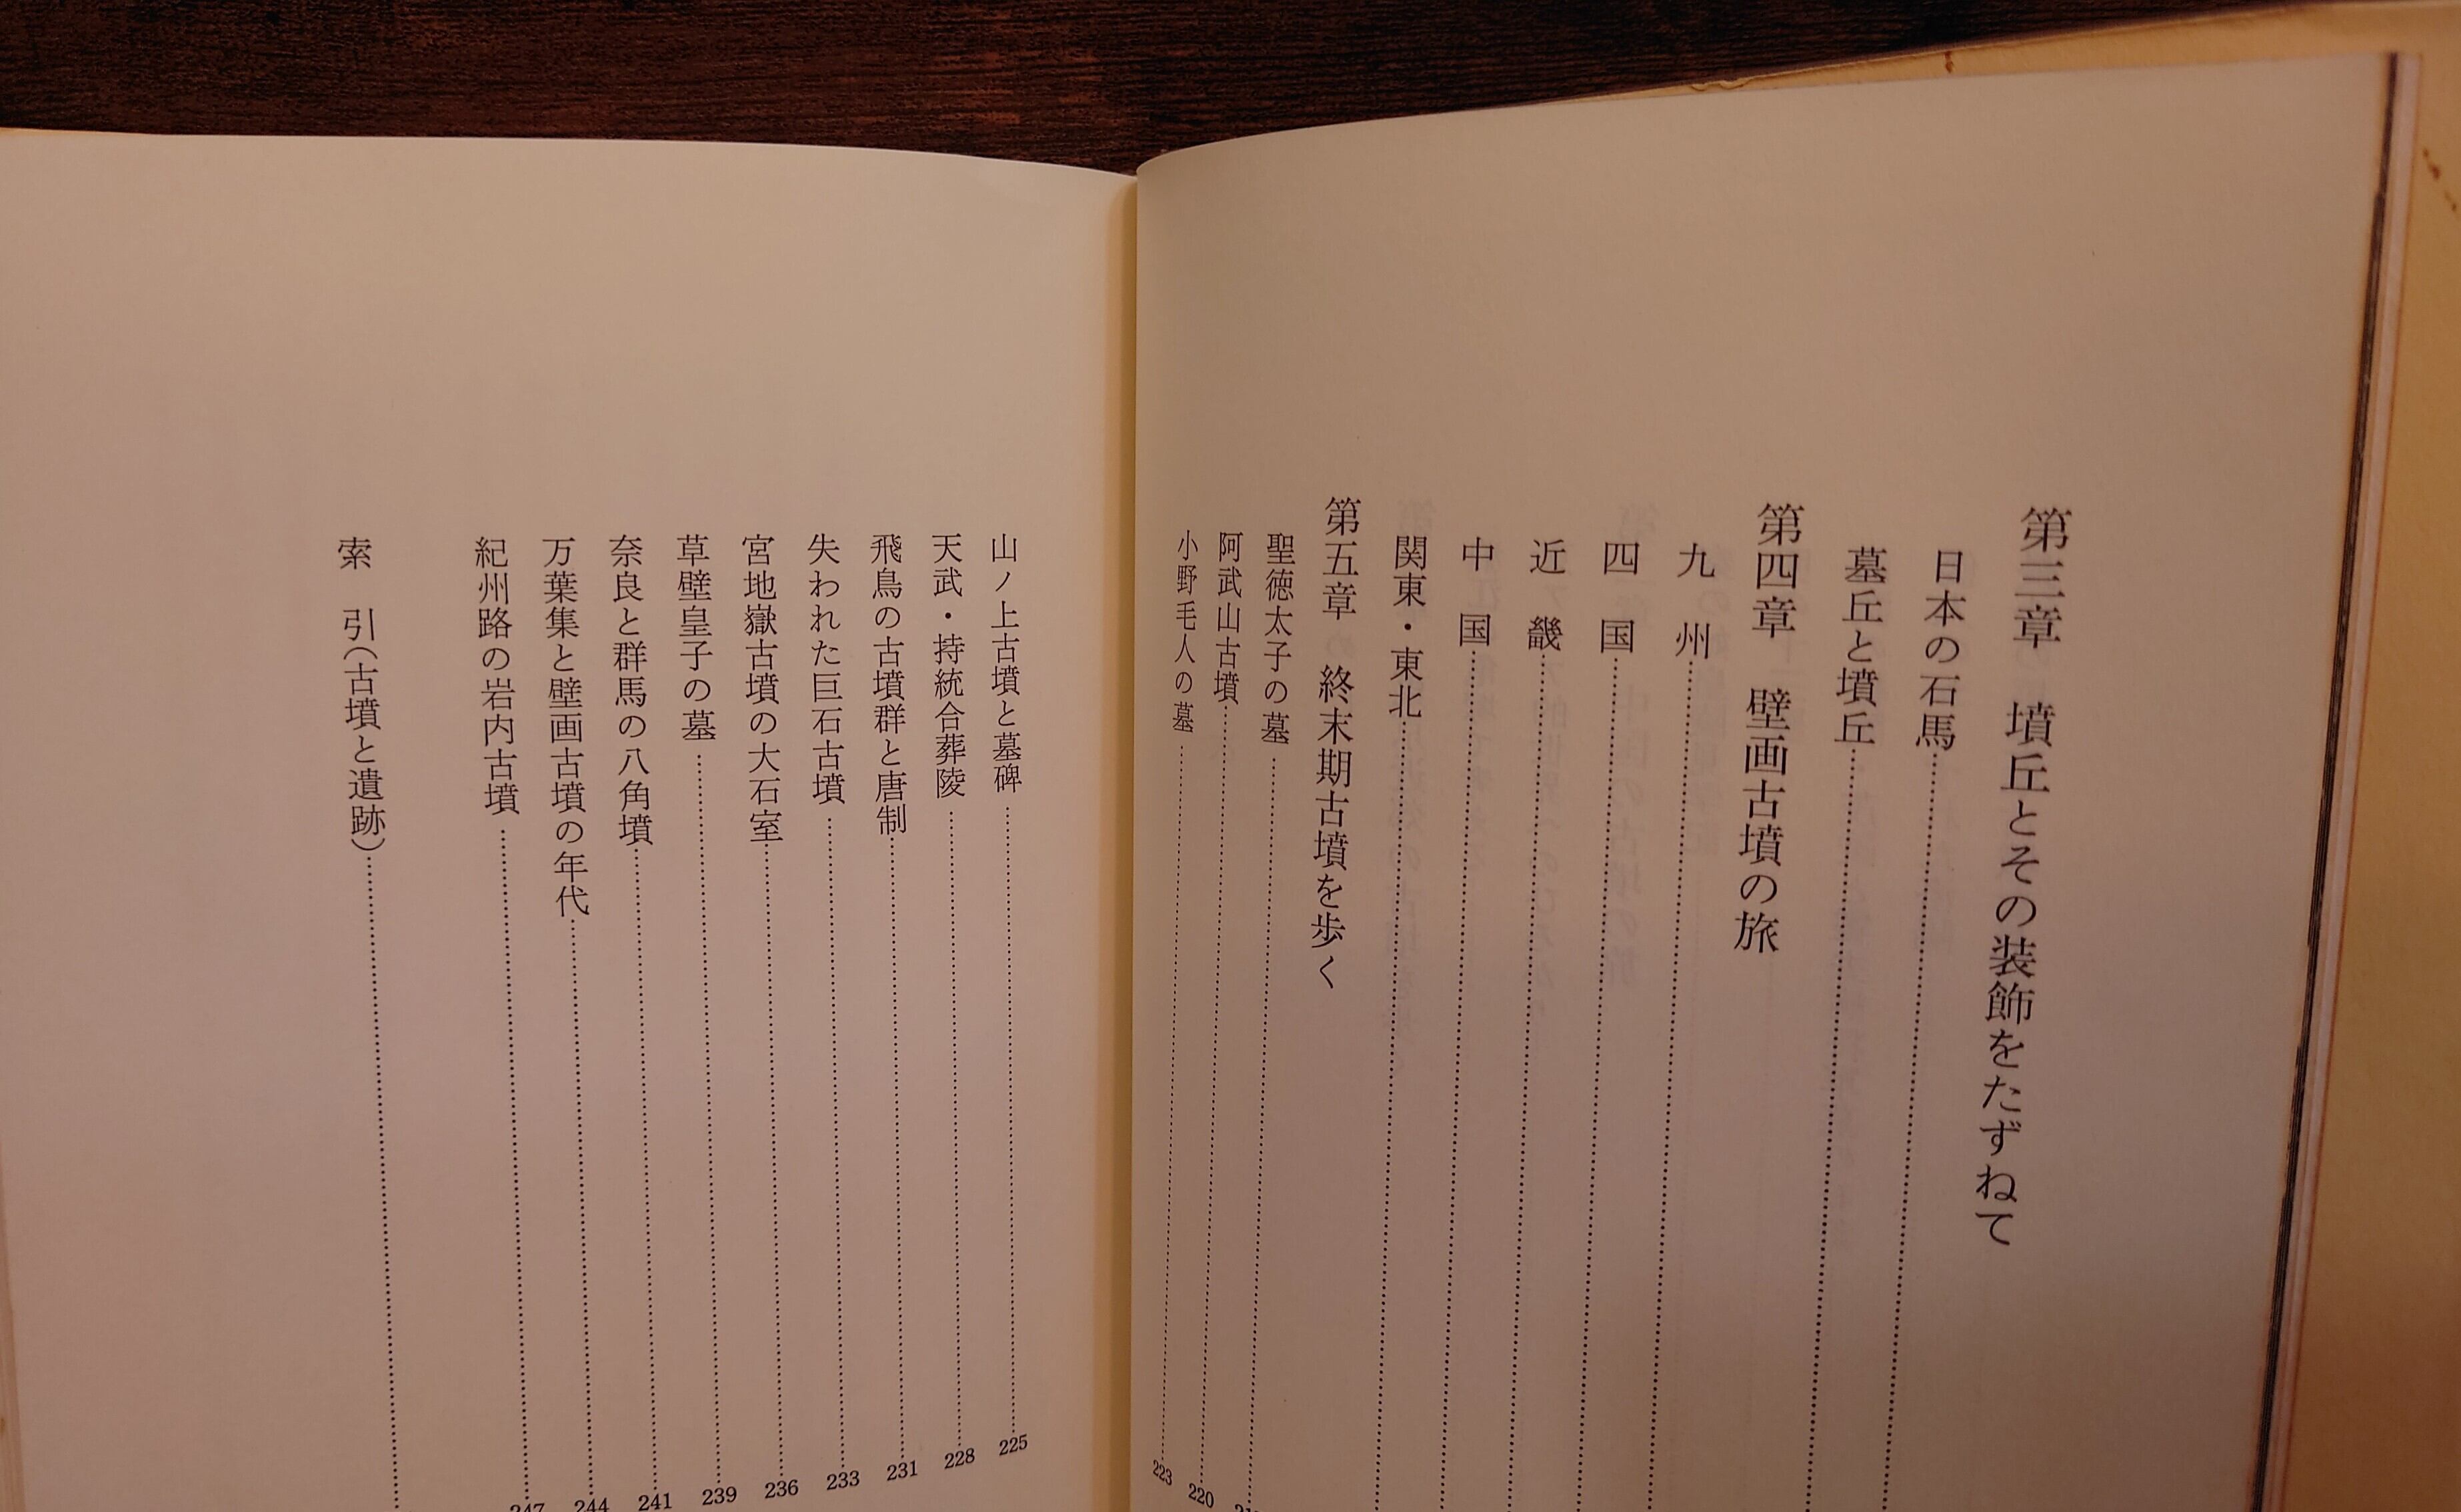 第三章　墳丘とその装飾をたずねて
日本の石馬
墓丘と墳丘
第四章　壁画古墳の旅
九　州
四　国
近　畿
中　国
関東・東北
第五章　終末期古墳を歩く
聖徳太子の墓
阿武山古墳 220
小野毛人の墓 223
山ノ上古墳と墓碑 225
天武・持統合葬陵 228
飛鳥の古墳群と唐制 231
失われた巨石古墳 233
宮地嶽古墳の大石室 236
草壁皇子の墓 239
奈良と群馬の八角墳 241
万葉集と壁画古墳の年代 244
紀州路の岩内古墳 247
索　引（古墳と遺跡）